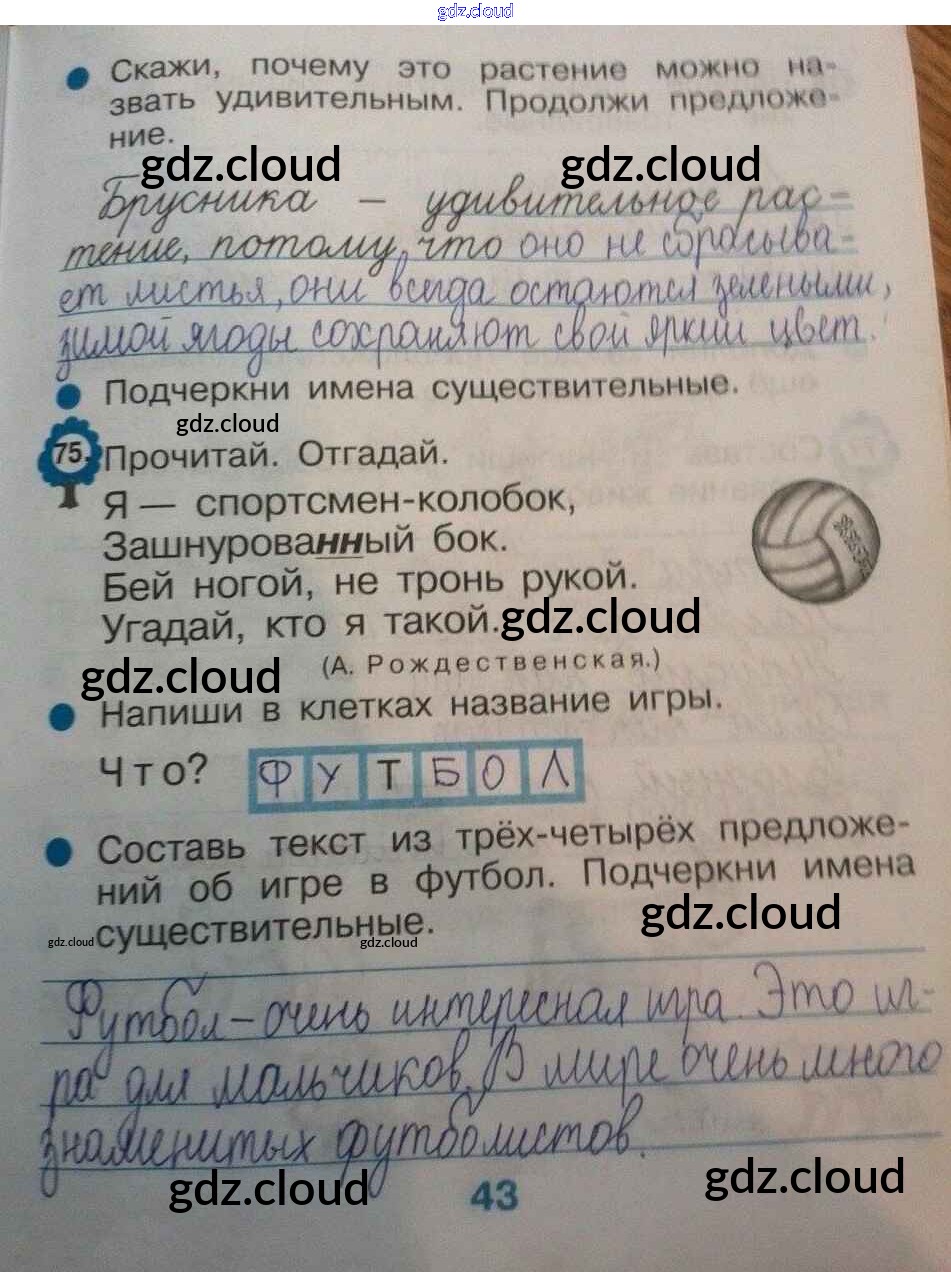 gdz.cloud
Скажи, почему это растение можно на-
звать удивительным. Продолжи предложе-
ние.
gdz.cloud gdz.cloud
Брусника – удивительное рас-
тение, потому, что оно не сбрасыва-
ет листья, они всегда остаются зелеными,
зимой ягоды сохраняют свой яркий цвет.
Подчеркни имена существительные.
gdz.cloud
75. Прочитай. Отгадай.
Я — спортсмен-колобок,
Зашнурованный бок.
Бей ногой, не тронь рукой.
Угадай, кто я такой.
gdz.cloud
(А. Рождественская.)
gdz.cloud
Напиши в клетках название игры.
Что? ФУТБОЛ
Составь текст из трёх-четырёх предложе-
ний об игре в футбол. Подчеркни имена
существительные.
gdz.cloud
gdz.cloud gdz.cloud
Футбол – очень интересная игра. Это иг-
ра для мальчиков. В мире очень много
знаменитых футболистов.
gdz.cloud 43 gdz.cloud